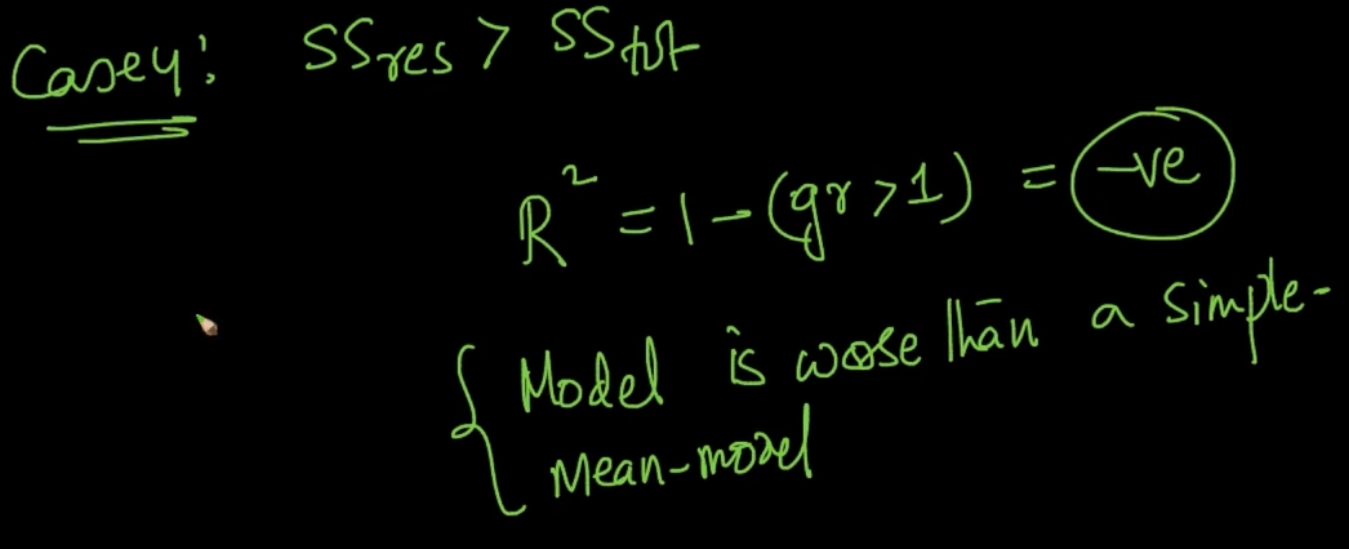 Case4: SSres > SStot
R² = 1 - (gr > 1) = -ve
{ Model is worse than a simple-
Mean-model